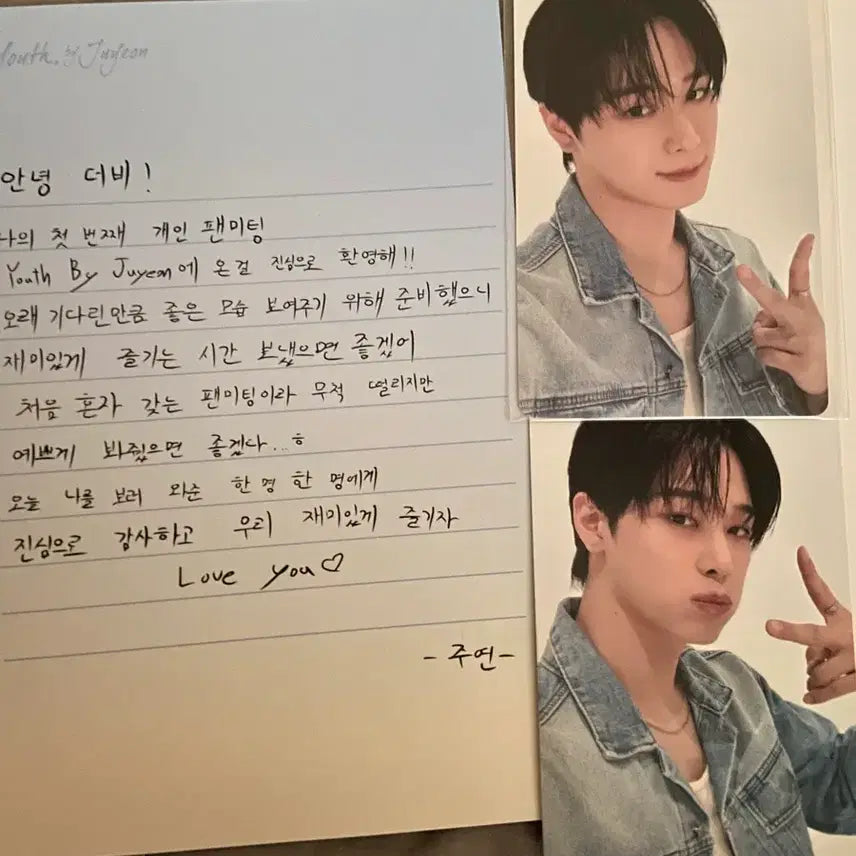 Youth. by Juyeon
안녕 더비!
나의 첫 번째 개인 팬미팅
Youth By Juyeon에 온걸 진심으로 환영해!!
오래 기다린만큼 좋은 모습 보여주기 위해 준비했으니
재미있게 즐기는 시간 보냈으면 좋겠어
처음 혼자 갖는 팬미팅이라 무척 떨리지만
예쁘게 봐줬으면 좋겠다...ㅎ
오늘 나를 보러 와준 한 명 한 명에게
진심으로 감사하고 우리 재미있게 즐기자
Love you♡
-주연-